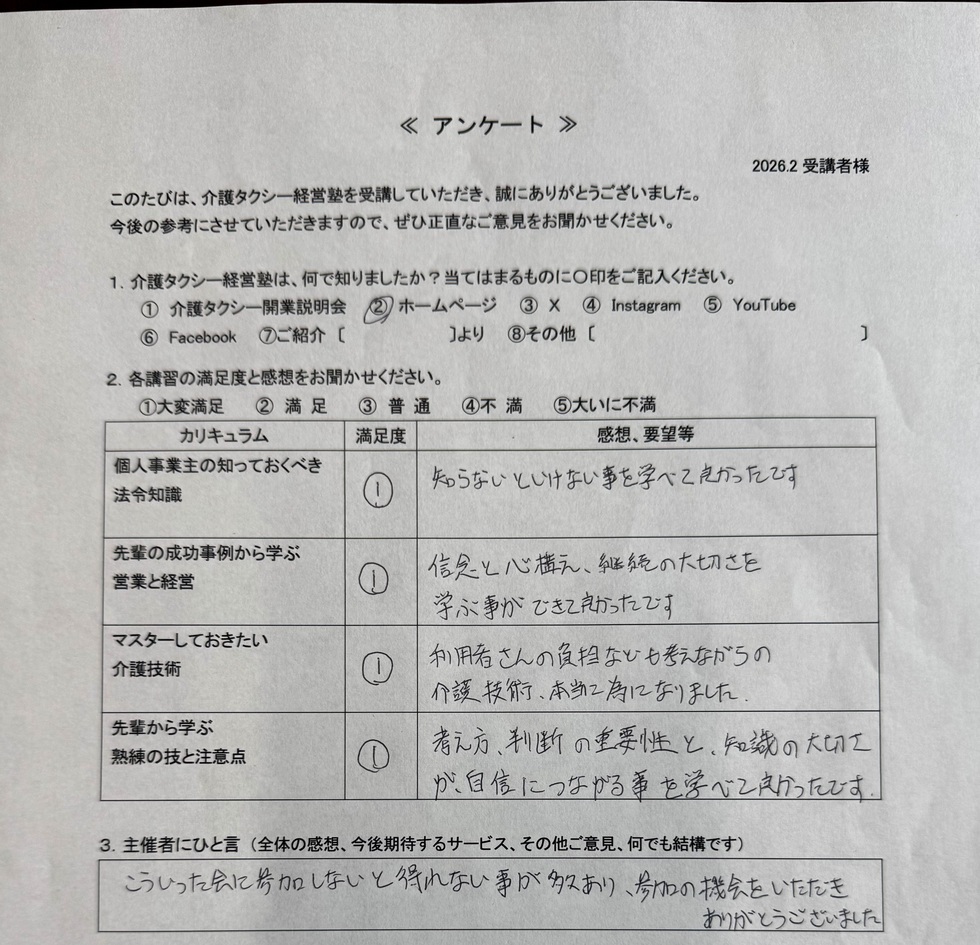 ≪ アンケート ≫
2026.2 受講者様
このたびは、介護タクシー経営塾を受講していただき、誠にありがとうございました。
今後の参考にさせていただきますので、ぜひ正直なご意見をお聞かせください。
1．介護タクシー経営塾は、何で知りましたか？当てはまるものに〇印をご記入ください。
① 介護タクシー開業説明会 ② ホームページ ③ X ④ Instagram ⑤ YouTube
⑥ Facebook ⑦ご紹介〔 〕より ⑧その他〔 〕
2．各講習の満足度と感想をお聞かせください。
①大変満足 ② 満 足 ③ 普 通 ④不 満 ⑤大いに不満
カリキュラム 満足度 感想、要望等
個人事業主の知っておくべき
法令知識
①
知らないといけない事を学べて良かったです
先輩の成功事例から学ぶ
営業と経営
①
信念と心構え、継続の大切さを
学ぶ事ができて良かったです
マスターしておきたい
介護技術
①
利用者さんの負担なども考えながらの
介護技術、本当に為になりました.
先輩から学ぶ
熟練の技と注意点
①
考え方、判断の重要性と、知識の大切さ
が、自信につながる事を学べて良かったです.
3．主催者にひと言（全体の感想、今後期待するサービス、その他ご意見、何でも結構です）
こういった会に参加しないと得れない事が多々あり、参加の機会をいただき
ありがとうございました